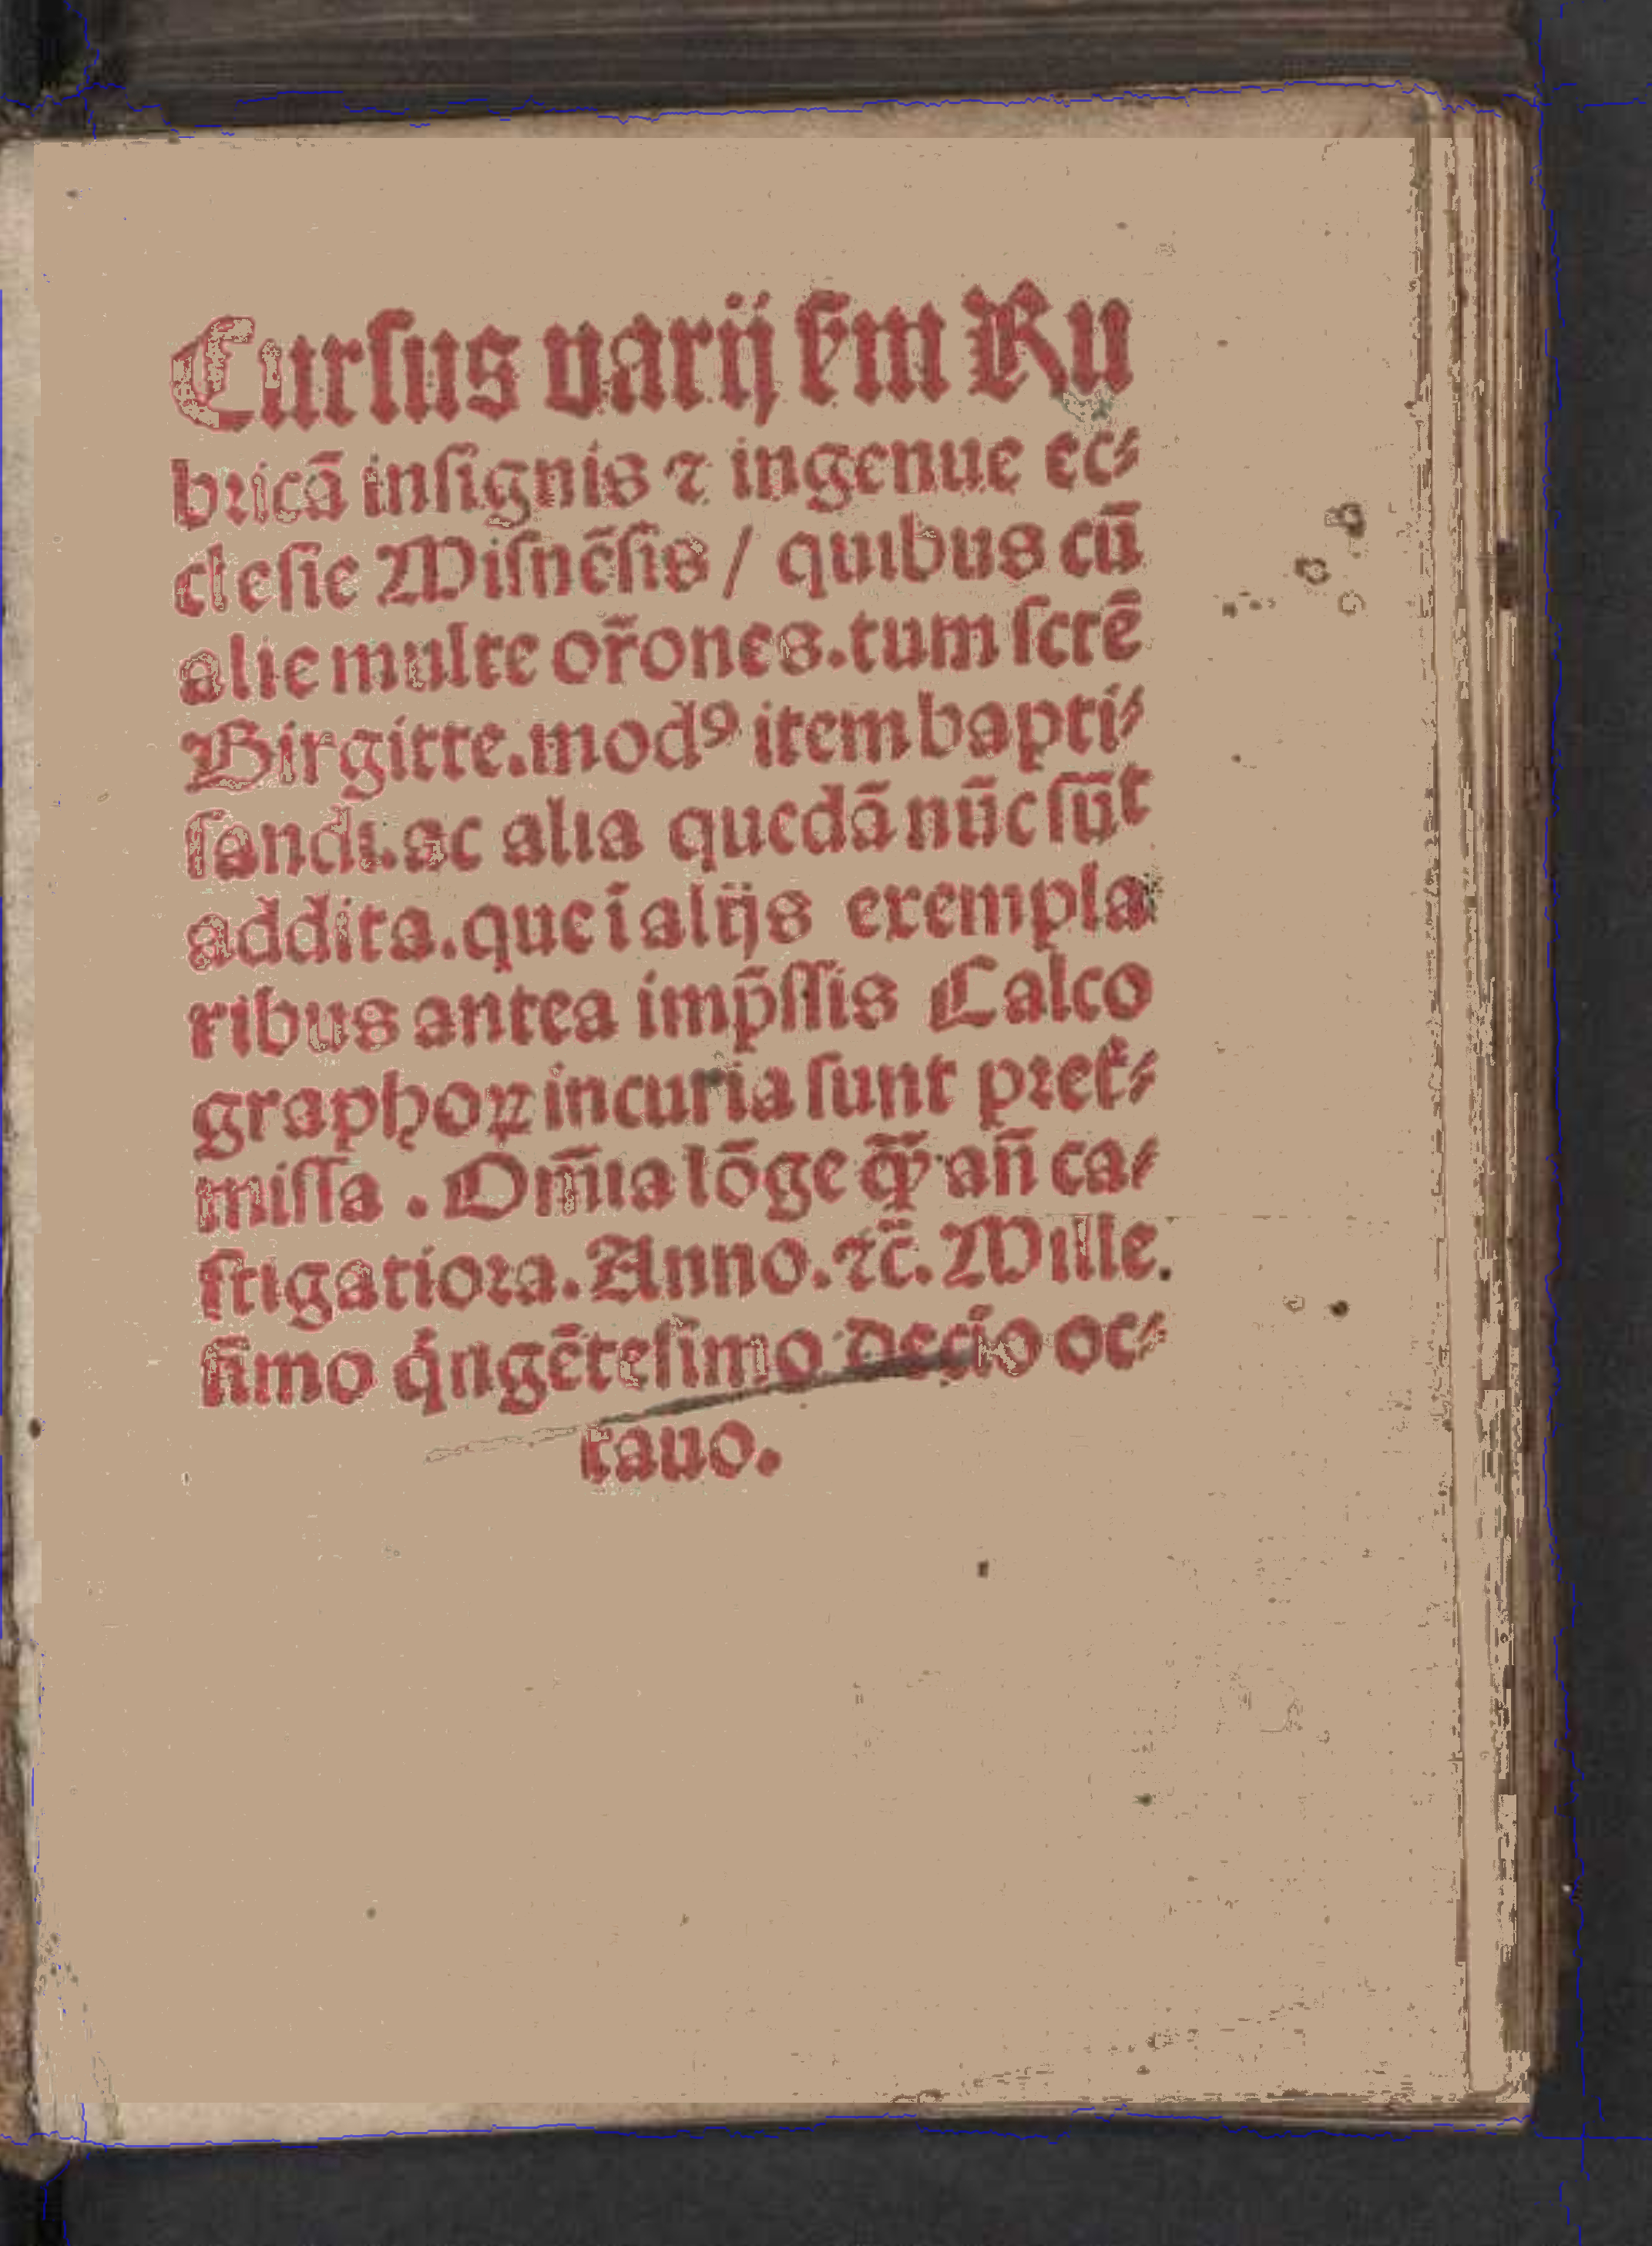 Curſus varij ẜm Ru
bricā inſignis ⁊ ingenue ec⸗
cleſie Miſnēſis / quibus cū
alie multe or̃ones. tum ſcrē
Birgitte. modꝰ item bapti⸗
ſandi. ac alia quedā nūc ſūt
addita. que ī alijs exempla
ribus antea imp̃ſſis Calco
graphoꝝ incuria ſunt pꝛet̾⸗
miſſa . Om̄ia lōge qꝫ̃ an̄ ca⸗
ſtigatioꝛa. Anno. ⁊c̄. Mille.
ſīmo qͥngēteſimo deciͦo oc⸗
tauo.